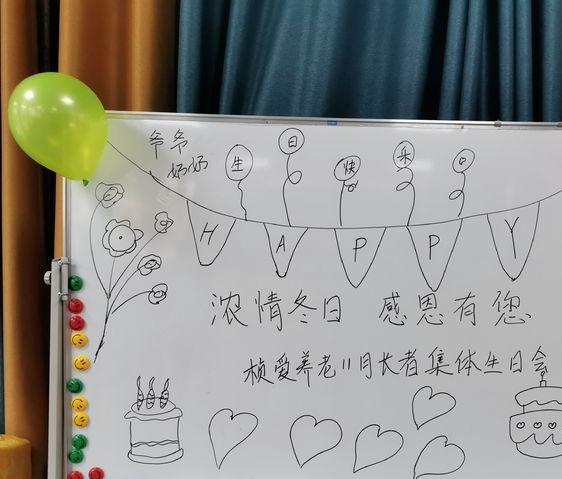 爷爷
奶奶
生日快乐
HAPPY
浓情冬日 感恩有您
桢爱养老11月长者集体生日会